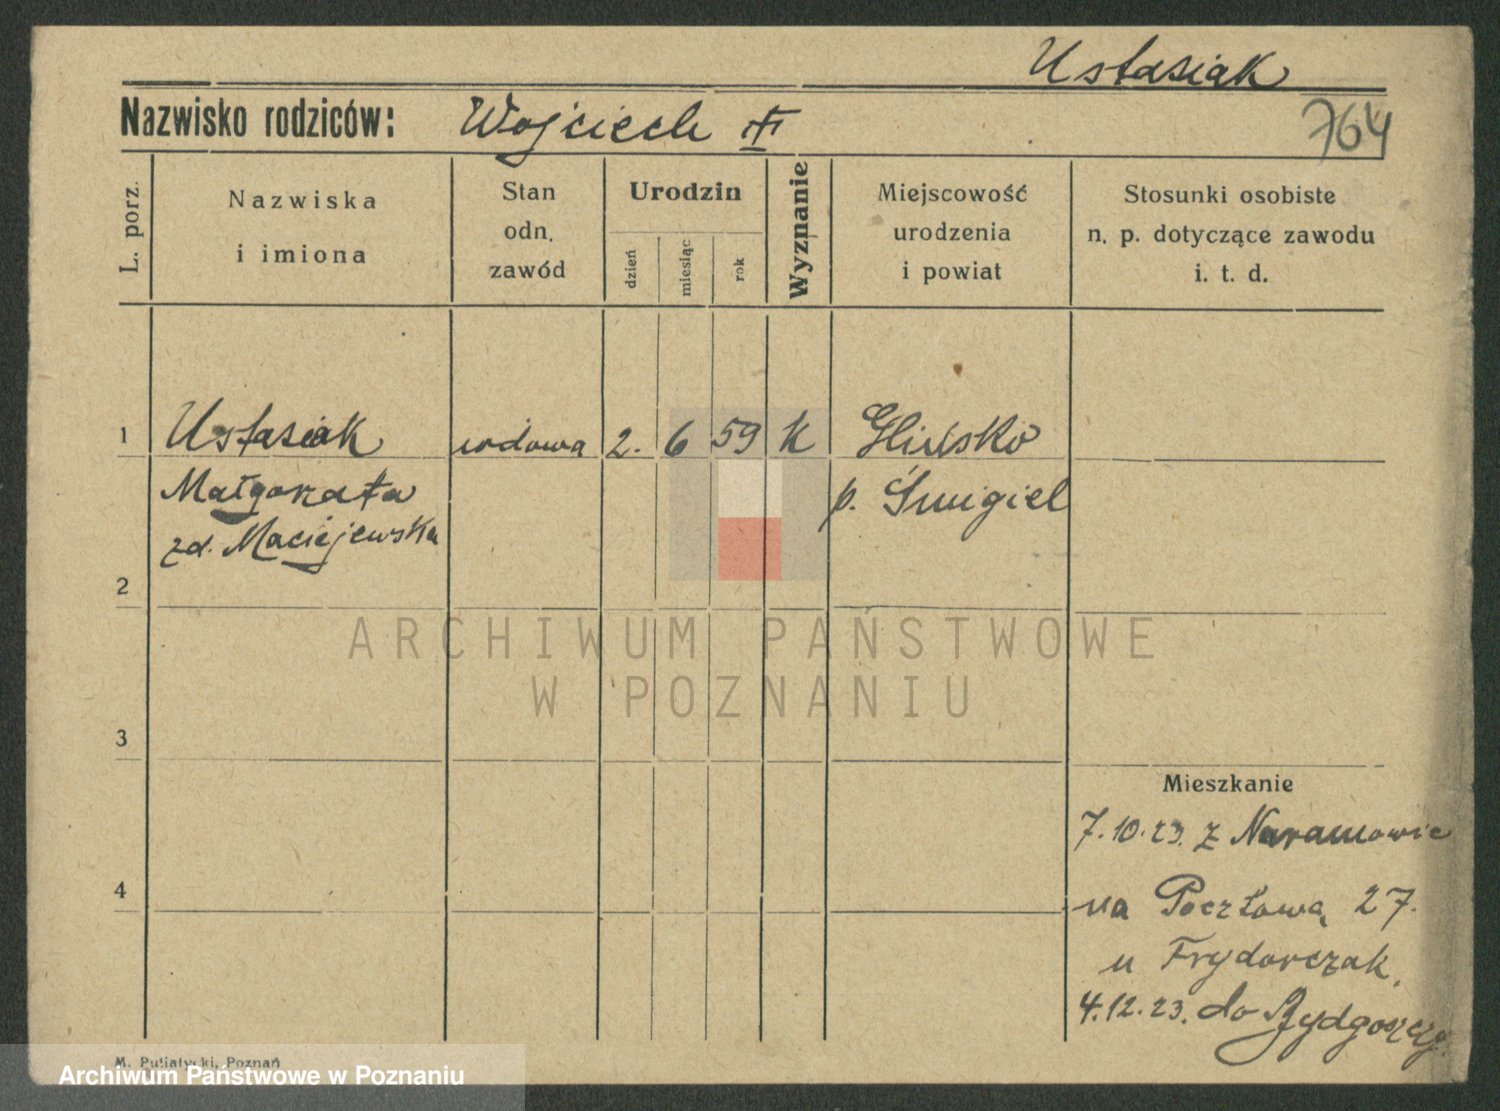 Ustasiak
Nazwisko rodziców: Wojciech
764
L. porz.
Nazwiska
i imiona
Stan
odn.
zawód
Urodzin
dzień
miesiąc
rok
Wyznanie
Miejscowość
urodzenia
i powiat
Stosunki osobiste
n. p. dotyczące zawodu
i. t. d.
1 Ustasiak wdowa 2. 6 59 K Glińsko
Małgorzata p. Śmigiel
zd. Maciejewska
2
ARCHIWUM PAŃSTWOWE
W POZNANIU
3
Mieszkanie
7.10.23. z Naramowic
4
na Pocztową 27.
u Frydorczak.
4.12.23. do Bydgoszczy.
M. Putiatycki, Poznań
Archiwum Państwowe w Poznaniu